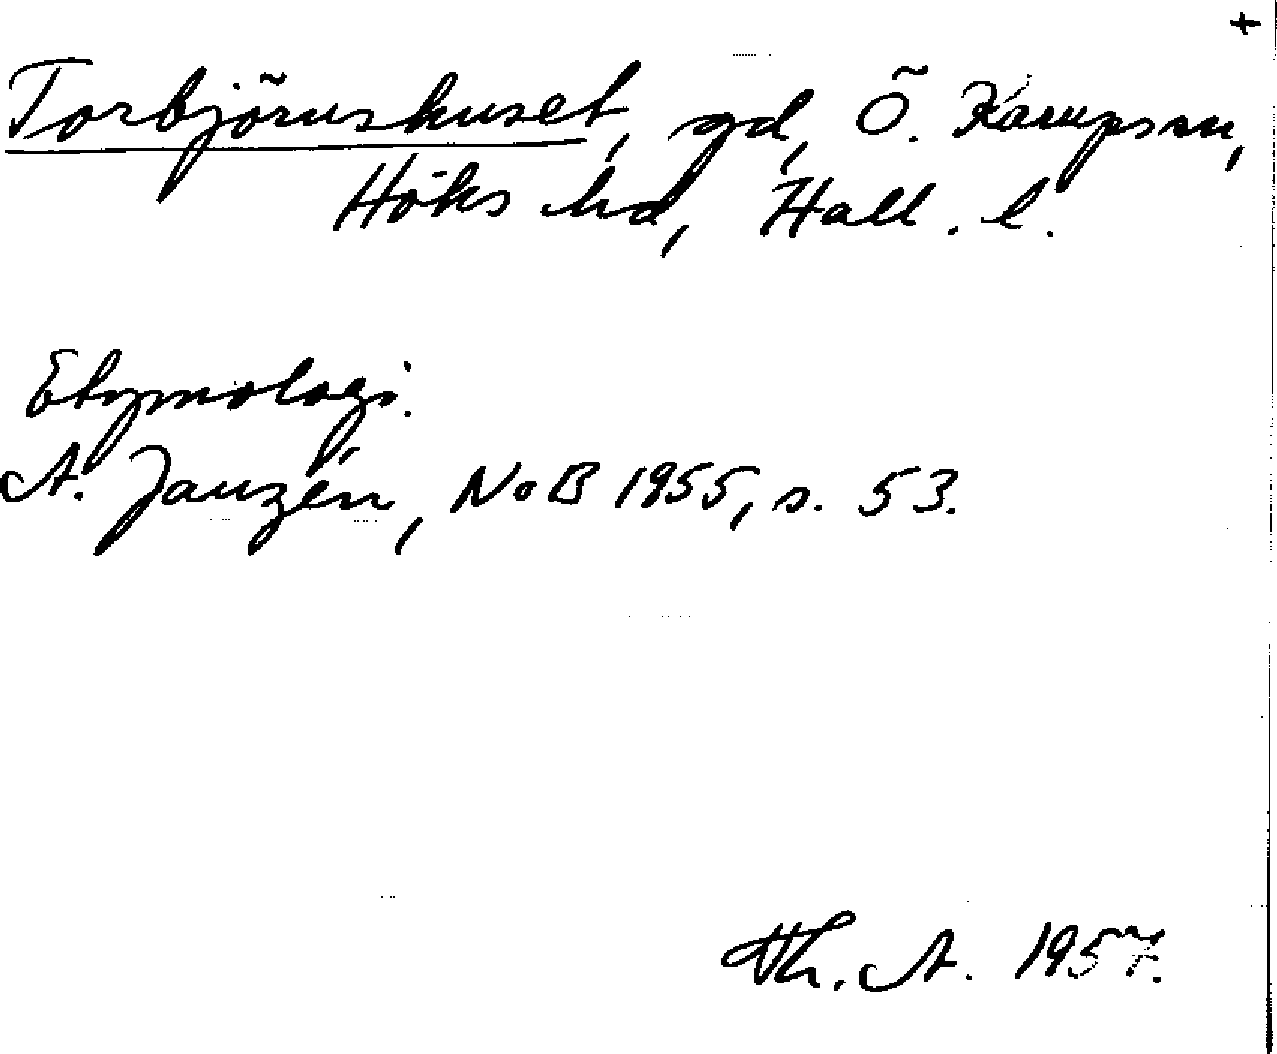 +
Torbjörnshuset, gd, Ö. Karups sn,
Höks hd, Hall. l.
Etymologi.
A. Janzén, NoB 1955, s. 53.
Th. A. 1957.